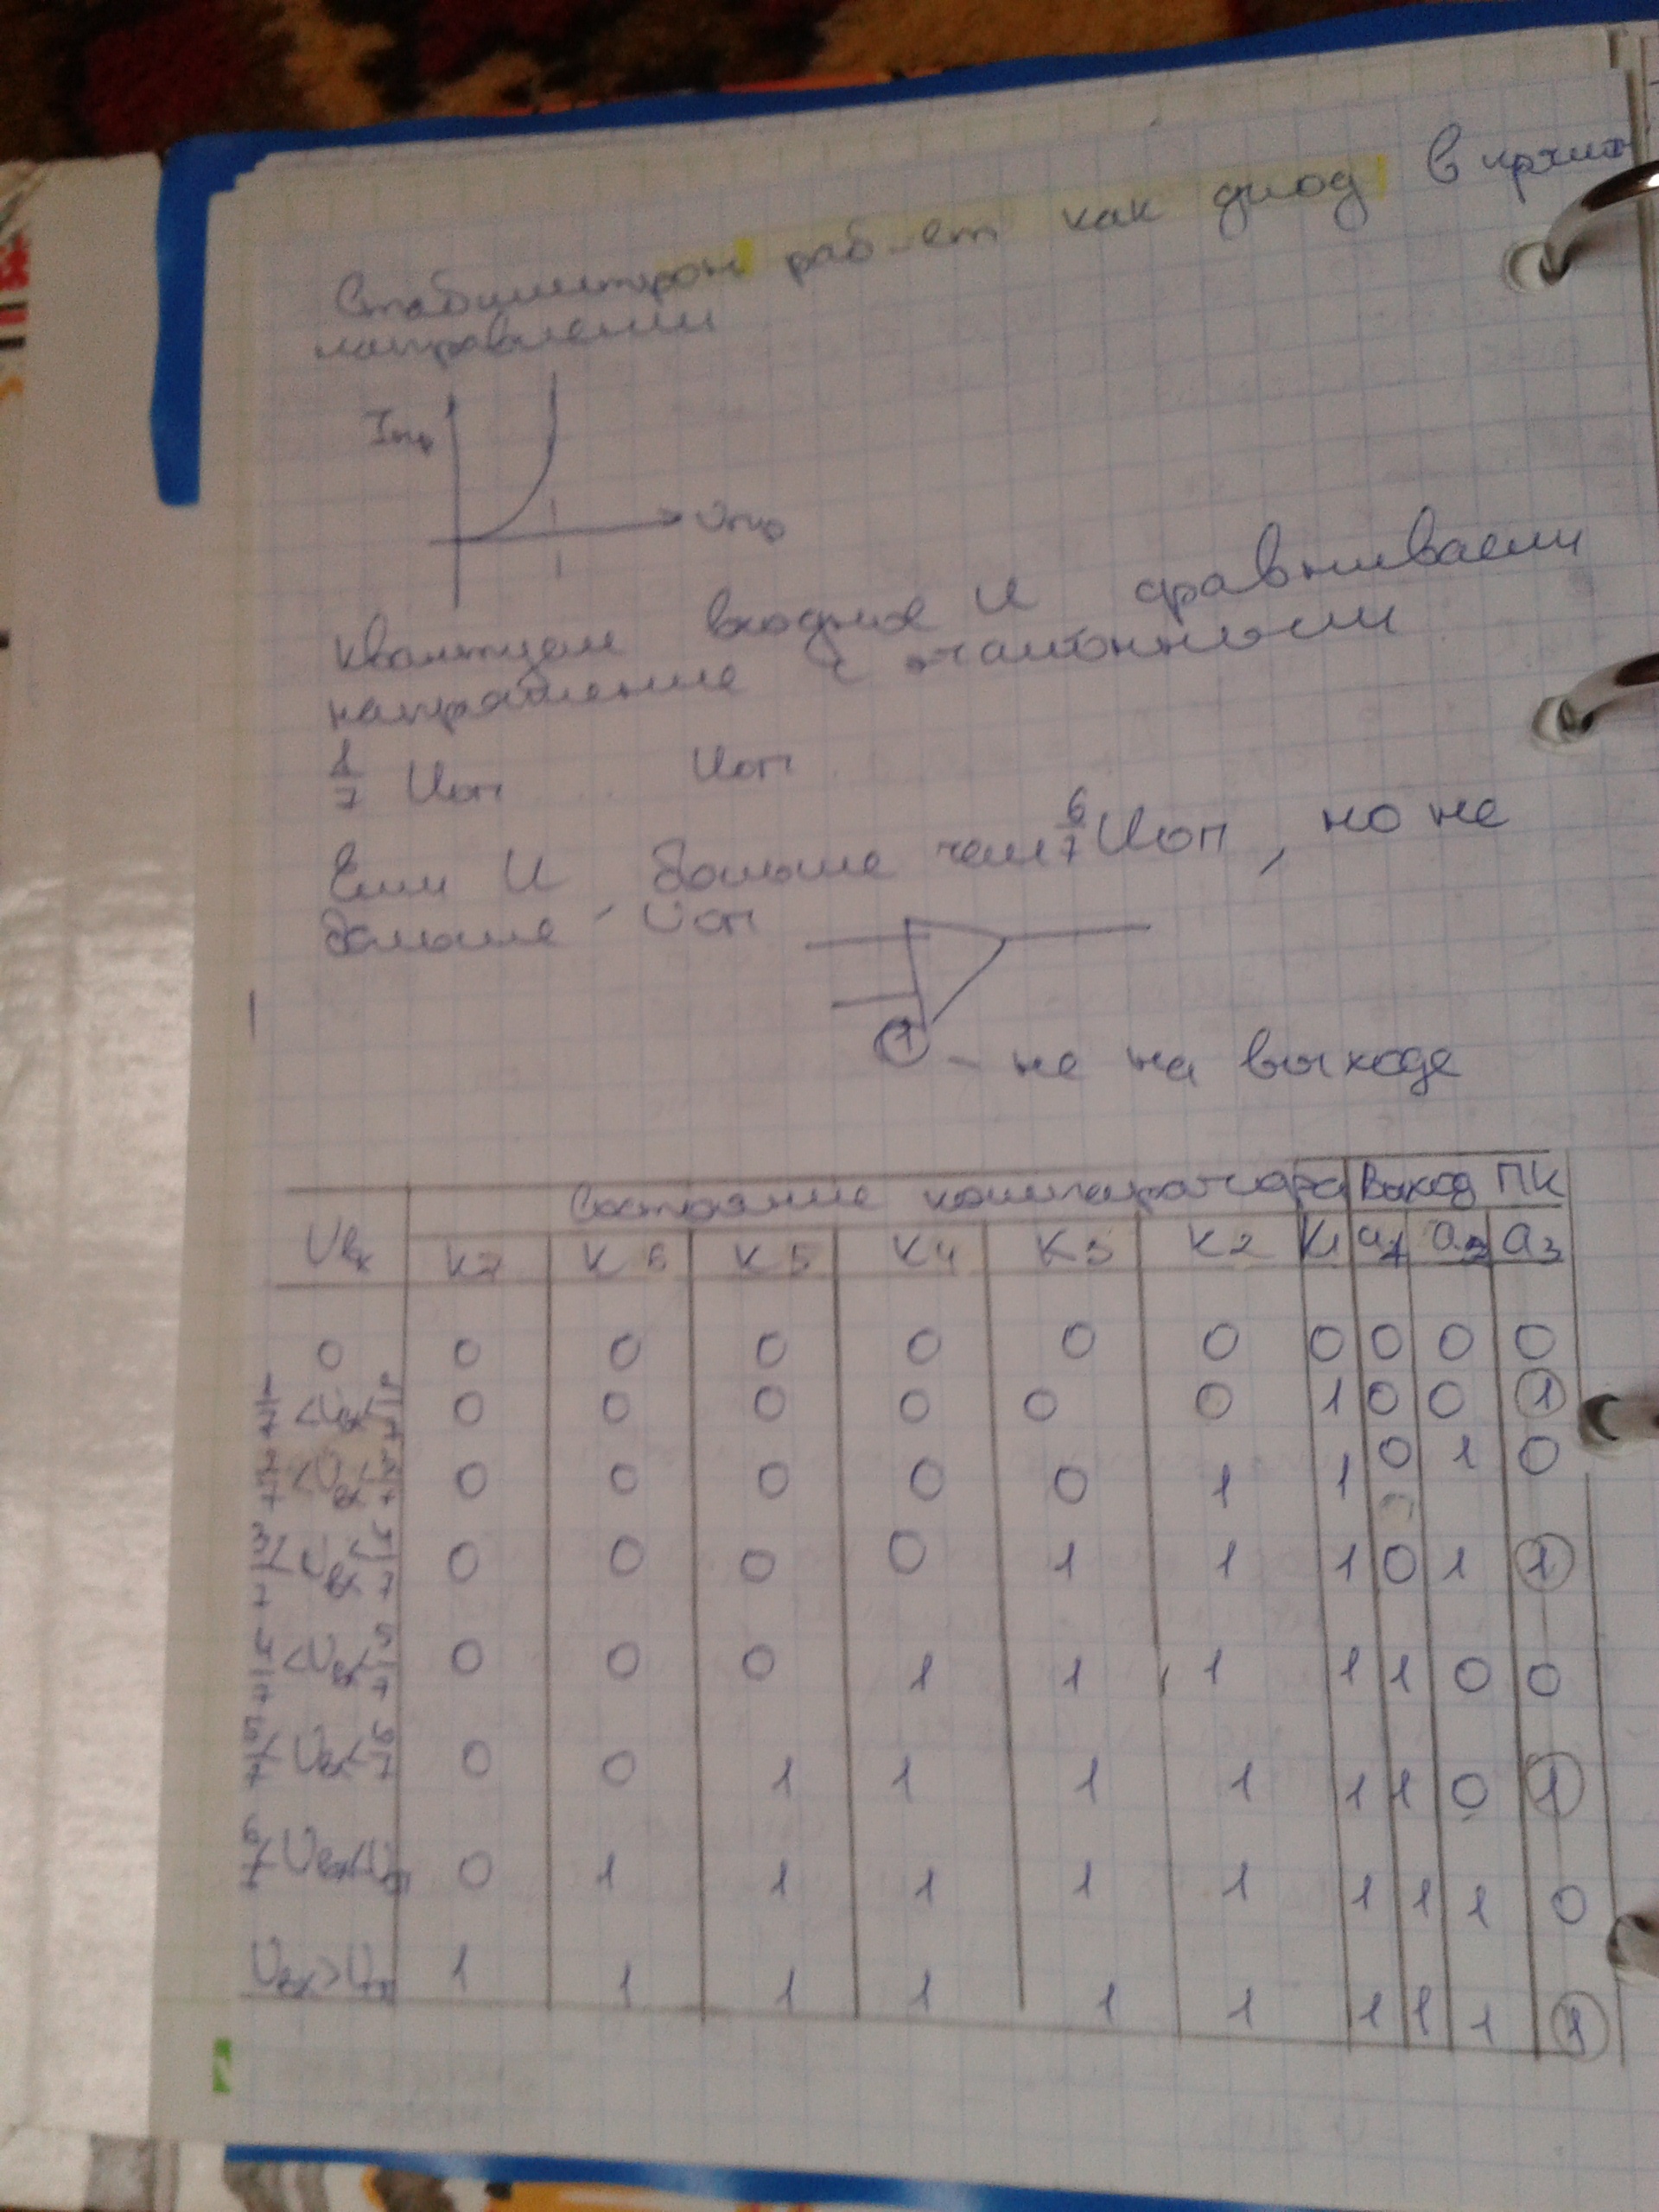 Стабилитрон раб-ет как диод в прям
направлении
Iпр
Uпр
квантуем входное U сравниваем
напряжение с эталонными
1/7 Uоп ... Uоп
Если U больше чем 6/7 Uоп, но не
больше Uоп
1 - не на выходе
Uвх Состояние компаратора Выход ПК
K7 K6 K5 K4 K3 K2 K1 a1 a2 a3
0 0 0 0 0 0 0 0 0 0 0
1/7 <Uвх< 2/7 0 0 0 0 0 0 1 0 0 1
2/7 <Uвх< 3/7 0 0 0 0 0 1 1 0 1 0
3/7 <Uвх< 4/7 0 0 0 0 1 1 1 0 1 1
4/7 <Uвх< 5/7 0 0 0 1 1 1 1 1 0 0
5/7 <Uвх< 6/7 0 0 1 1 1 1 1 1 0 1
6/7 <Uвх<Uоп 0 1 1 1 1 1 1 1 1 0
Uвх>Uоп 1 1 1 1 1 1 1 1 1 1